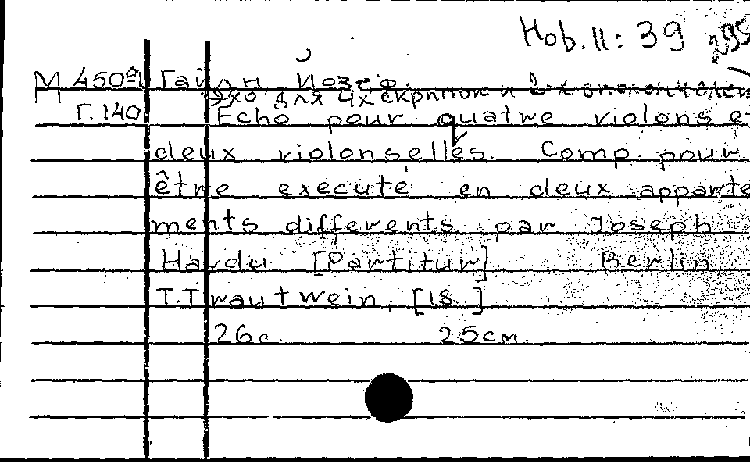 Hob. II: 39
М 450 Гайдн Йозеф.
Эхо для 4х скрипок и 2-х виолончелей
Г. 140 Echo pour quatre violons et
deux violonselles. Comp. pour
être executé en deux apparte
ments differents par Joseph
Haydn [Partitur] Berlin
T. Trautwein, [18 ]
26с. 25см